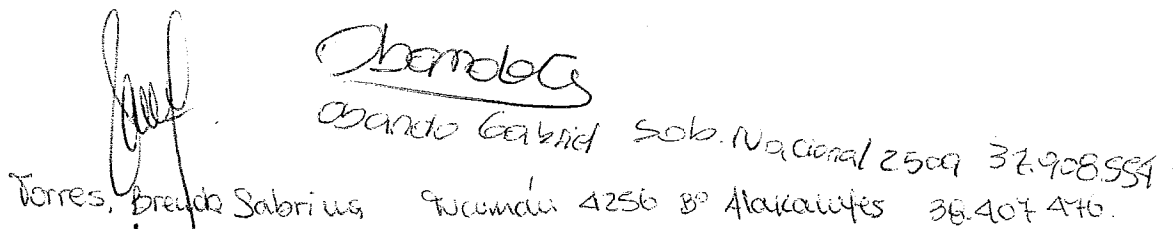 Obando G
Obando Gabriel Sob. Nacional 2509 37.908.554
Torres, Brenda Sabrina Tucumán 4256 Bº Alakalufes 38.407.476.